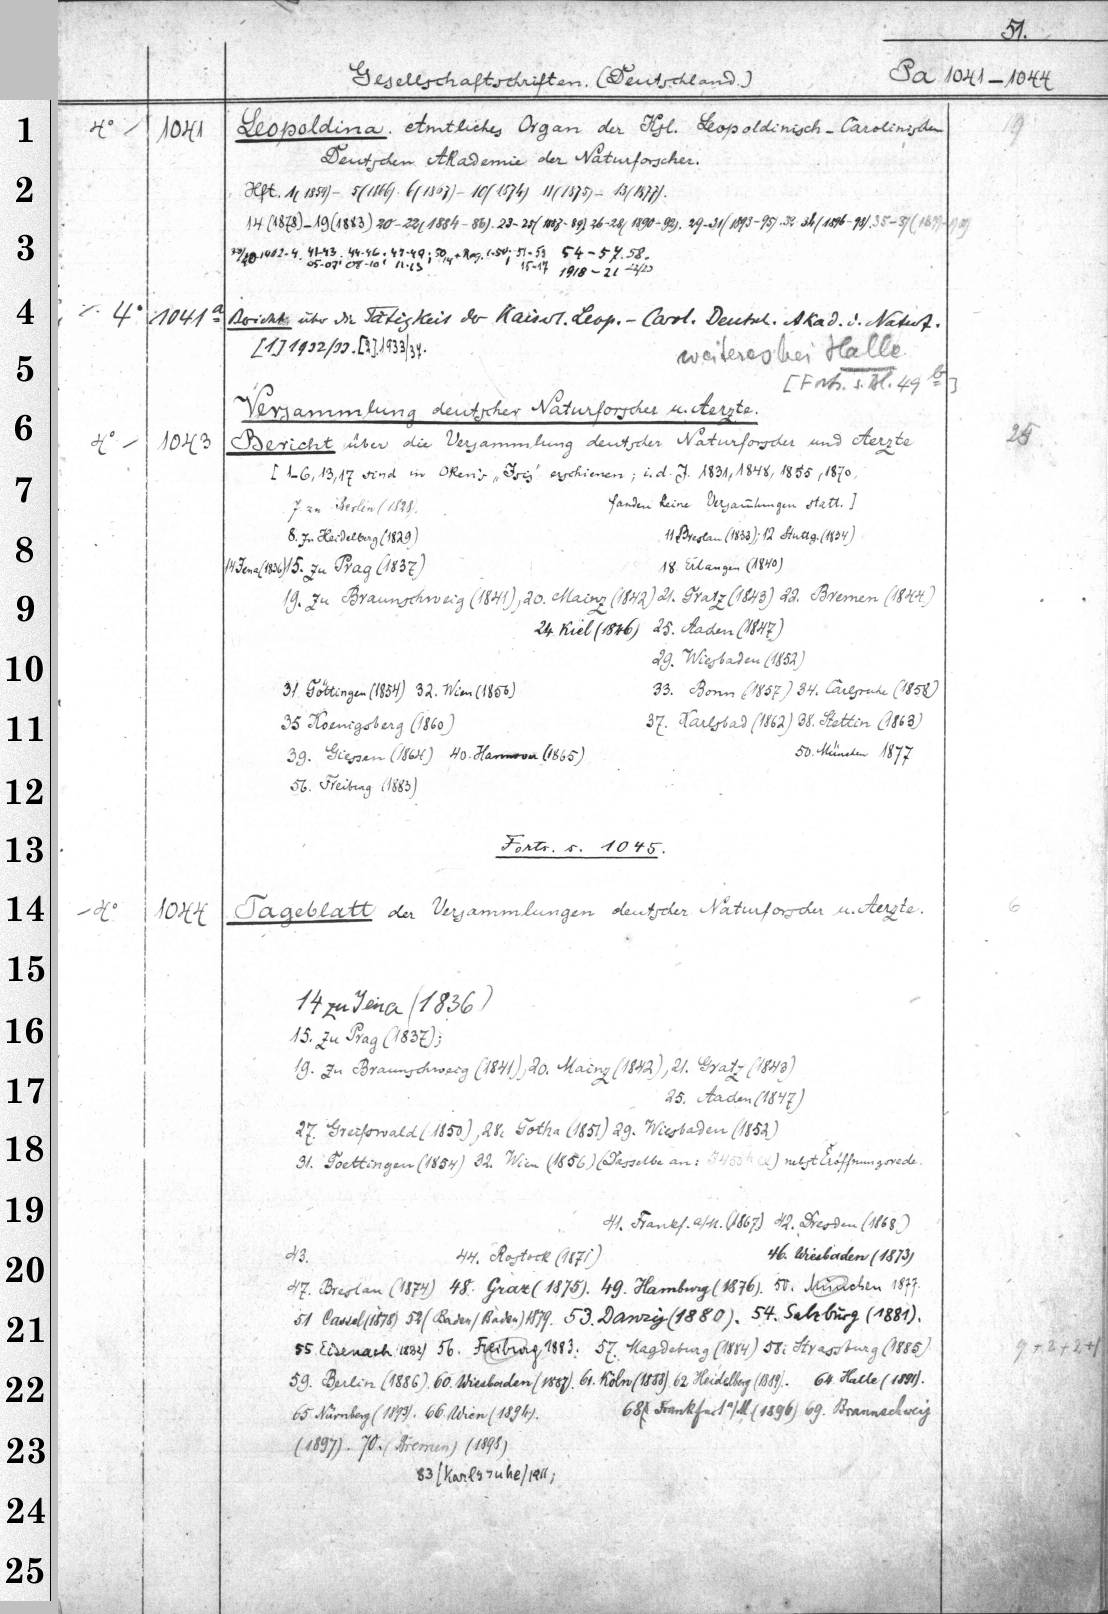 51.
Gesellschaftschriften. (Deutschland.) Pa 1041-1044
1
4° 1041 Leopoldina. Amtliches Organ der Kgl. Leopoldinisch-Carolinischen 19
Deutschen Akademie der Naturforscher.
2
Hft. 1(1859)- 5(1866). 6(1867)- 10(1874) 11(1875)- 13(1877).
14(1878)-19(1883) 20-22(1884-86). 23-25(1887-89) 26-28(1890-92). 29-31(1893-95). 32-34(1896-98). 35-37(1899-1901)
3
1902-4. 41-43. 44-46. 47-49; 50 + Reg. 1-50; 51-53 54-57. 58.
05-07; 08-10; 11-13 15-17 1918-21 22/23
4
4° 1041a Bericht über die Tätigkeit der Kaiserl. Leop.-Carol. Deutsch. Akad. d. Naturf.
5
[1] 1932/33. [2] 1933/34. weiteres bei Halle
[Forts. s. Bl. 49 b]
6
Versammlung deutscher Naturforscher u. Aerzte.
4° 1043 Bericht über die Versammlung deutscher Naturforscher und Aerzte 25
7
[1-6, 13, 17 sind in Oken's „Isis' erschienen; i. d. J. 1831, 1848, 1855, 1870.
7. zu Berlin (1828. fanden keine Versam̄lungen statt.]
8
8. zu Heidelberg (1829) 11 Breslau (1833); 12 Stuttg. (1834)
14 Jena (1836) 15. zu Prag (1837) 18. Erlangen (1840)
9
19. zu Braunschweig (1841), 20. Mainz (1842) 21. Gratz (1843) 22. Bremen (1844)
24 Kiel (1846) 25. Aachen (1847)
10
29. Wiesbaden (1852)
31. Göttingen (1854) 32. Wien (1856) 33. Bonn (1857) 34. Carlsruhe (1858)
11
35 Koenigsberg (1860) 37. Karlsbad (1862) 38. Stettin (1863)
39. Giessen (1864) 40. Hannover (1865) 50. München 1877
12
56. Freiburg (1883)
13
Forts. s. 1045.
14
4° 1044 Tageblatt der Versammlungen deutscher Naturforscher u. Aerzte. 6
15
16
14 zu Jena (1836)
15. zu Prag (1837);
17
19. zu Braunschweig (1841), 20. Mainz (1842), 21. Gratz (1843)
25. Aachen (1847)
18
27. Greifswald (1850), 28. Gotha (1851) 29. Wiesbaden (1852)
31. Goettingen (1854) 32. Wien (1856) (Dasselbe an: ) nebst Eröffnungsrede.
19
41. Frankf. a/M. (1867) 42. Dresden (1868)
20
43. 44. Rostock (1871) 46. Wiesbaden (1873)
47. Breslau (1874) 48. Graz (1875). 49. Hamburg (1876). 50. München 1877.
21
51 Cassel (1878) 52 (Baden/Baden) 1879. 53. Danzig (1880). 54. Salzburg (1881).
55. Eisenach (1882) 56. Freiburg 1883. 57. Magdeburg (1884) 58. Strassburg (1885) 9+2+2+1
22
59. Berlin (1886). 60. Wiesbaden (1887). 61. Köln (1888) 62 Heidelberg (1889). 64. Halle (1891).
65 Nürnberg (1893). 66. Wien (1894). 68. Frankfurt a/M (1896) 69. Braunschweig
23
(1897). 70. (Bremen) (1898)
83 (Karlsruhe) 1911;
24
25